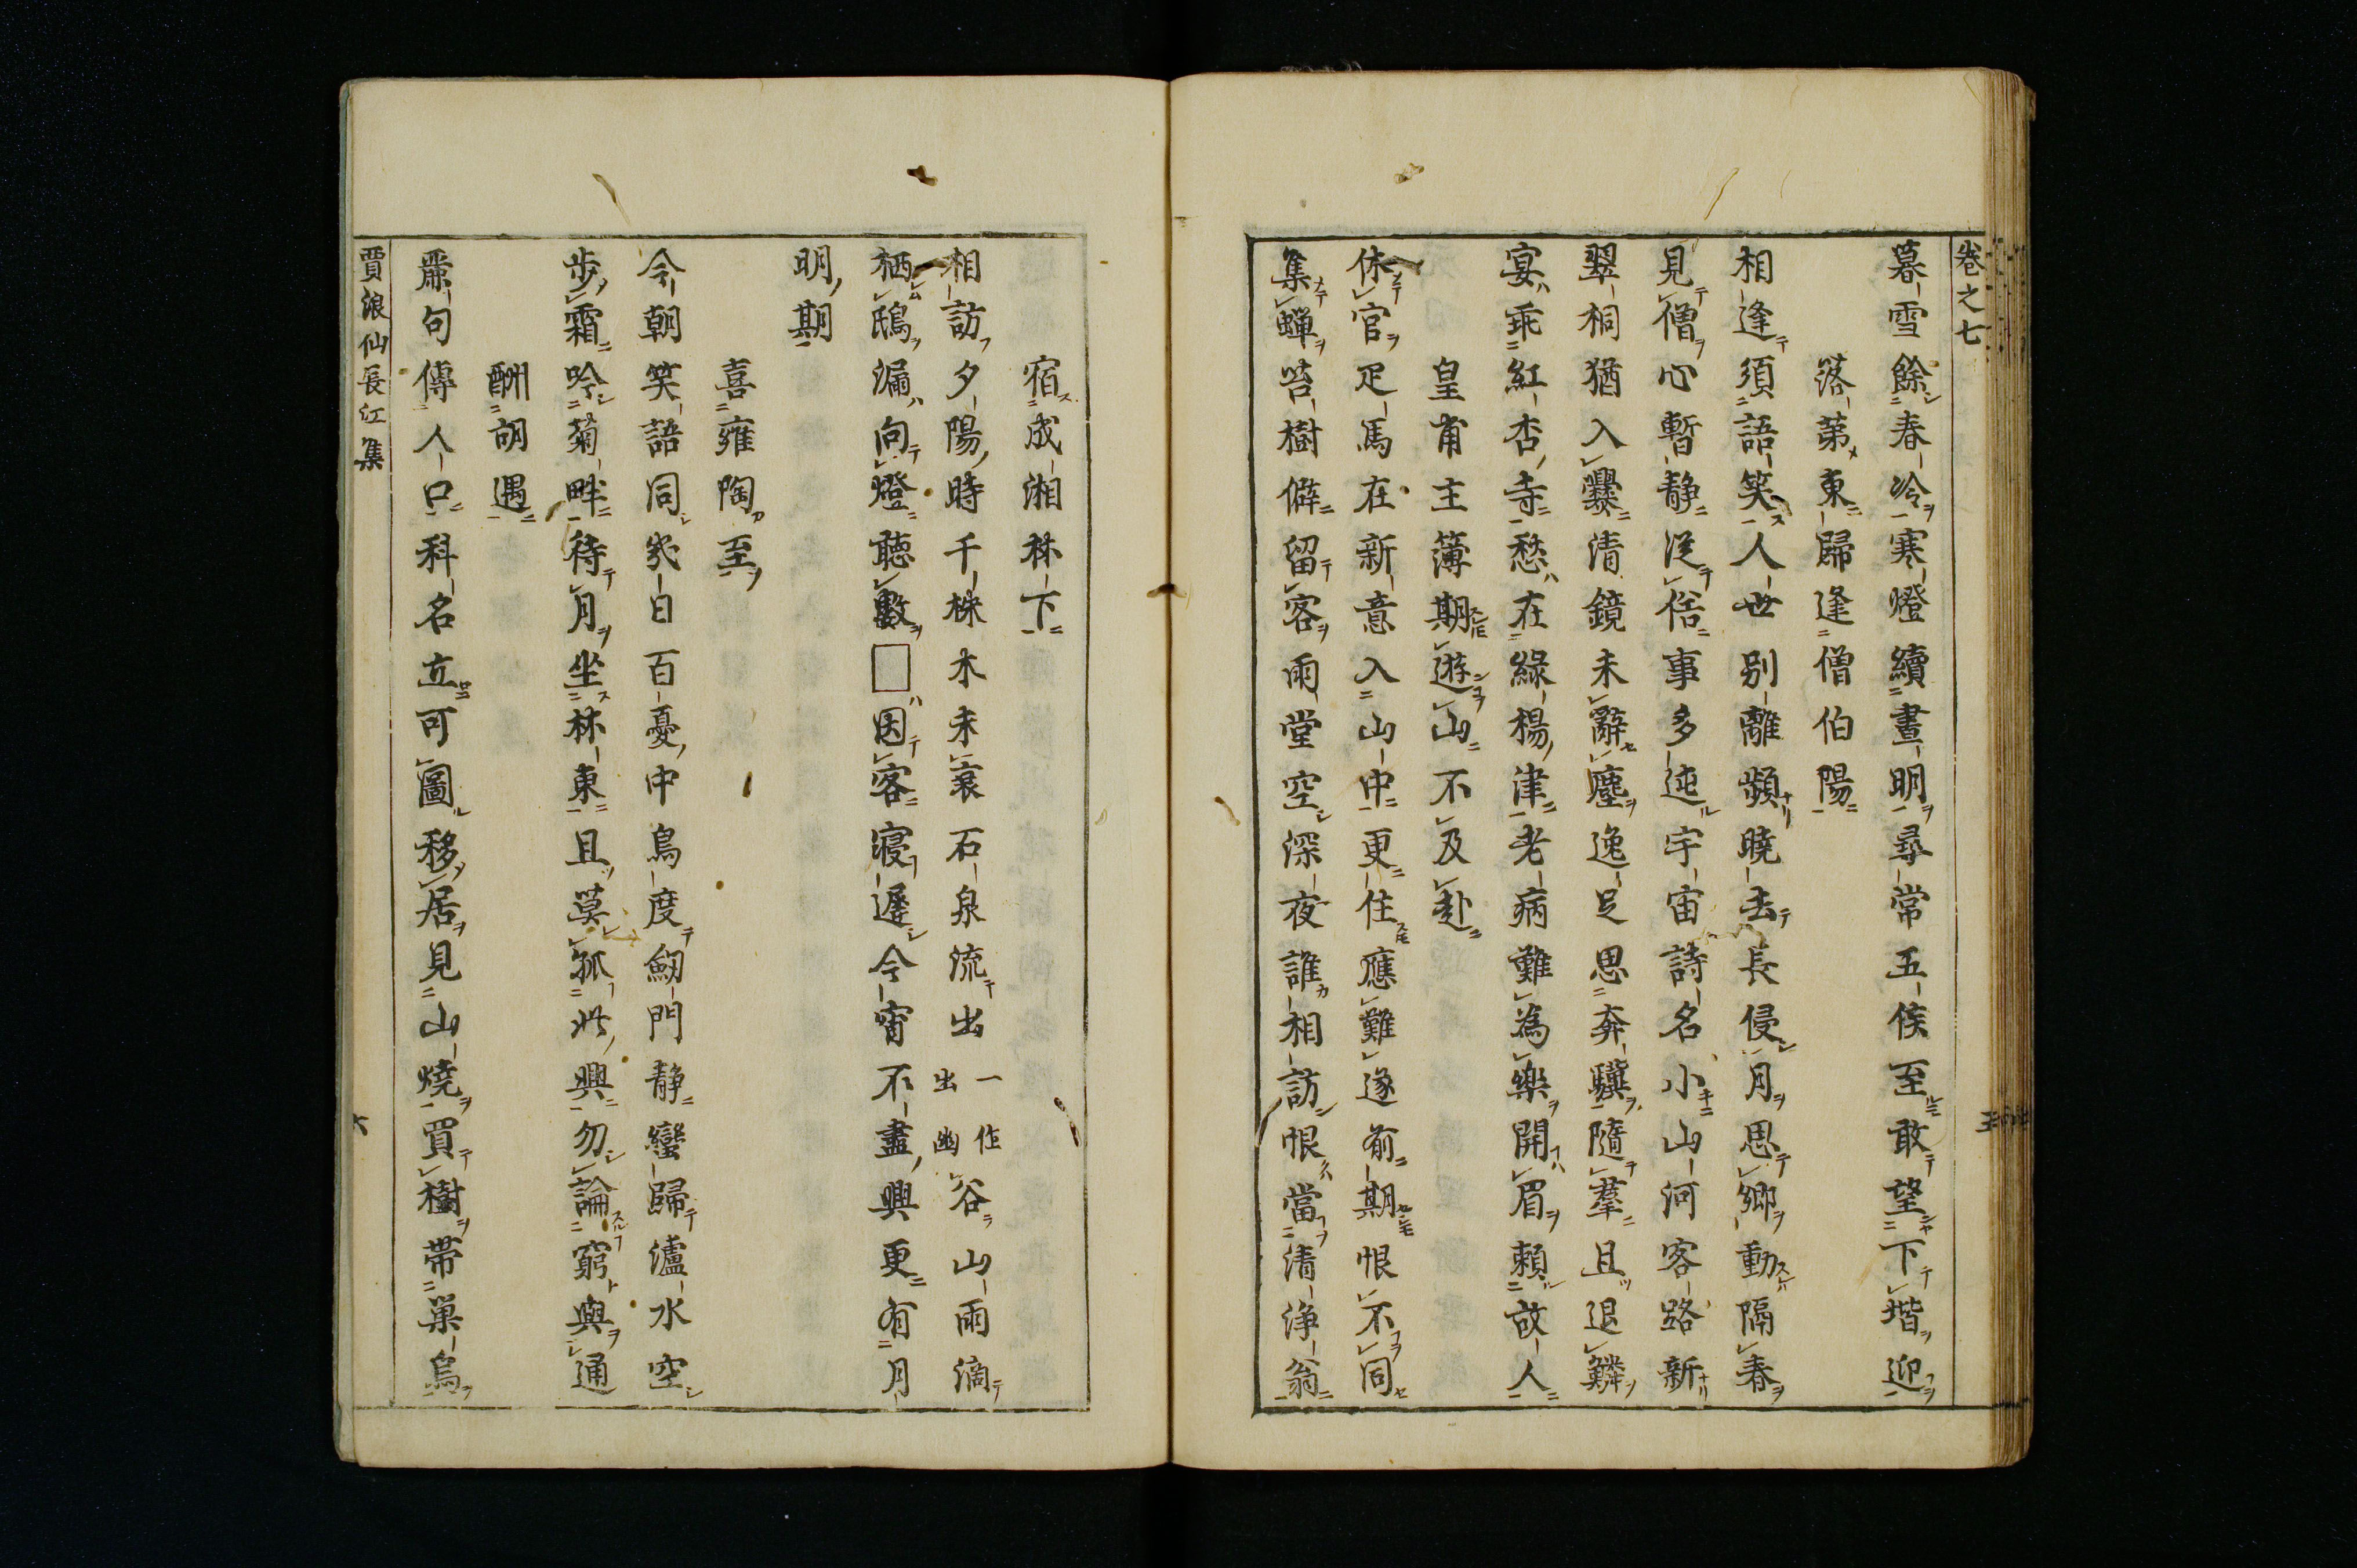 卷之七
暮雪餘春冷寒燈續晝明尋常五侯至敢望下堦迎
落第東歸逢僧伯陽
相逢須語笑人世別離頻曉去長侵月思鄉動隔春
見僧心暫静從俗事多迍宇宙詩名小山河客路新
翠桐猶入爨清鏡未辭塵逸足思奔驥隨羣且退鱗
宴乖紅杏寺愁在綠楊津老病難為樂開眉賴故人
皇甫主簿期遊山不及赴
休官疋馬在新意入山中更住應難遂前期恨不同
集蟬苔樹僻留客雨堂空深夜誰相訪恨當清淨翁
宿成湘林下
相訪夕陽時千株木未衰石泉流出一作出幽谷山雨滴
栖鴟漏向燈聽數□因客寢遲今宵不盡興更有月
明期
喜雍陶至
今朝笑語同幾日百憂中鳥度劒門静蠻歸瀘水空
步霜吟菊畔待月坐林東且莫孤此興勿論窮與通
酬胡遇
麗句傳人口科名立可圖移居見山燒買樹帶巢烏
賈浪仙長江集
六